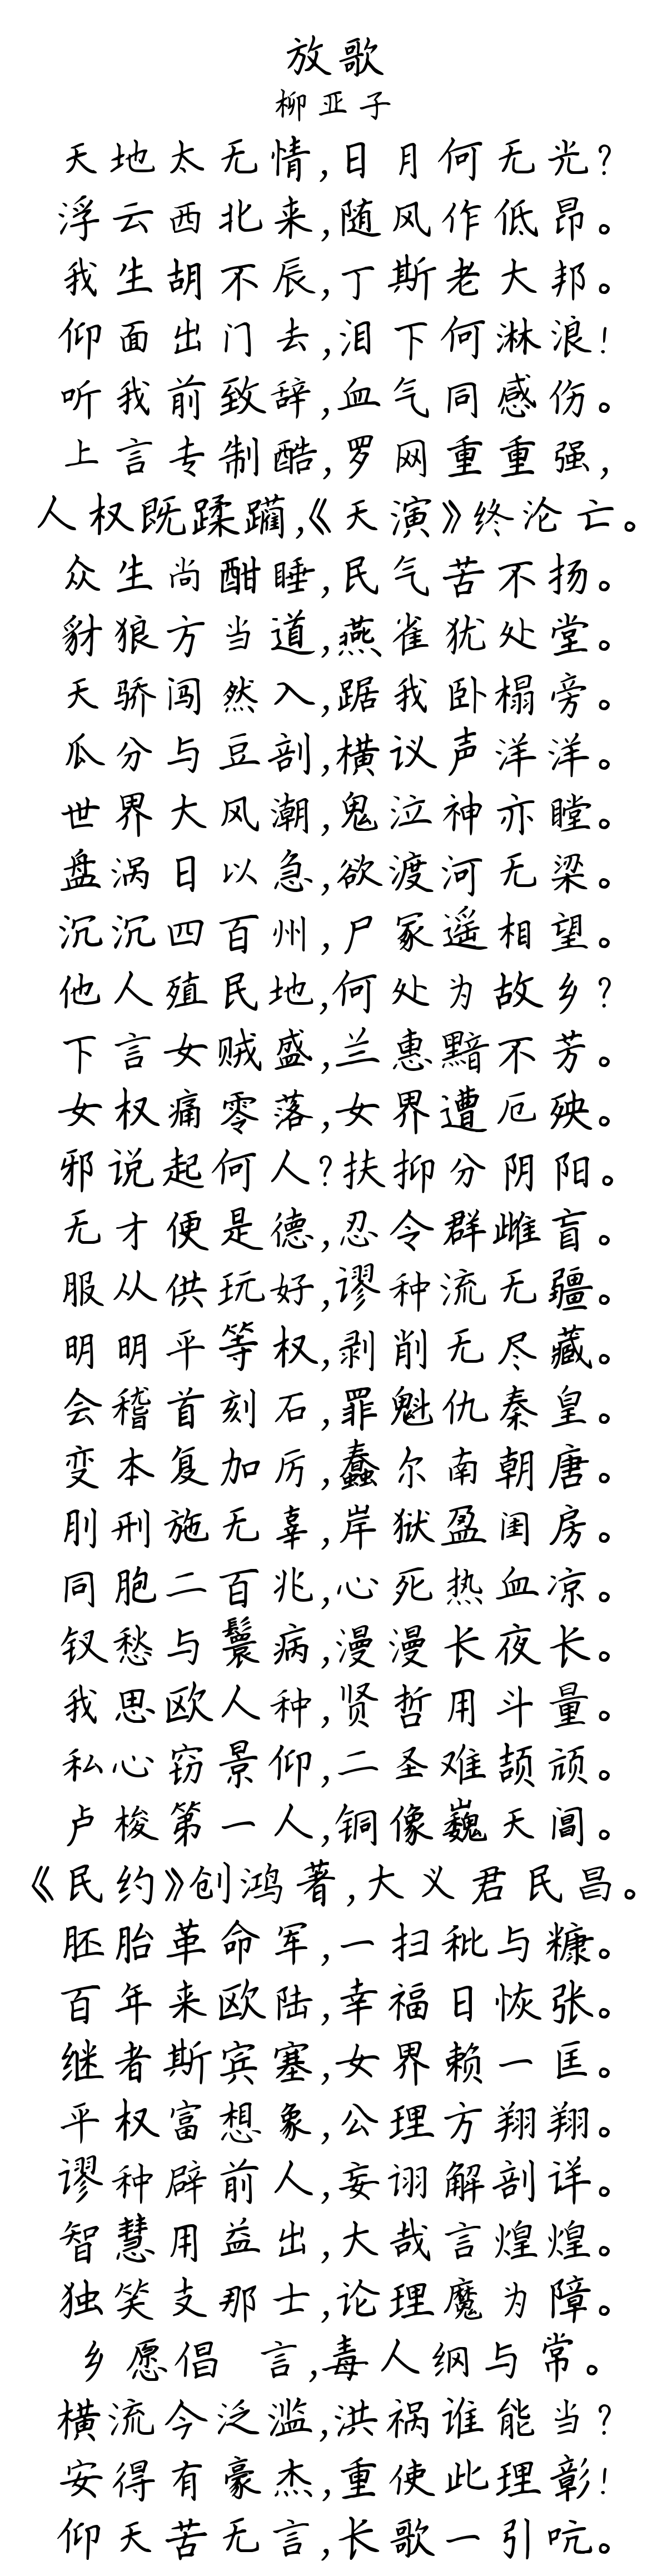 放歌
柳亚子
天地太无情,日月何无光?
浮云西北来,随风作低昂。
我生胡不辰,丁斯老大邦。
仰面出门去,泪下何淋浪!
听我前致辞,血气同感伤。
上言专制酷,罗网重重强,
人权既蹂躏,《天演》终沦亡。
众生尚酣睡,民气苦不扬。
豺狼方当道,燕雀犹处堂。
天骄闯然入,踞我卧榻旁。
瓜分与豆剖,横议声洋洋。
世界大风潮,鬼泣神亦瞠。
盘涡日以急,欲渡河无梁。
沉沉四百州,尸冢遥相望。
他人殖民地,何处为故乡?
下言女贼盛,兰惠黯不芳。
女权痛零落,女界遭厄殃。
邪说起何人?扶抑分阴阳。
无才便是德,忍令群雌盲。
服从供玩好,谬种流无疆。
明明平等权,剥削无尽藏。
会稽首刻石,罪魁仇秦皇。
变本复加厉,蠢尔南朝唐。
刖刑施无辜,岸狱盈闺房。
同胞二百兆,心死热血凉。
钗愁与鬟病,漫漫长夜长。
我思欧人种,贤哲用斗量。
私心窃景仰,二圣难颉颃。
卢梭第一人,铜像巍天阊。
《民约》创鸿著,大义君民昌。
胚胎革命军,一扫秕与糠。
百年来欧陆,幸福日恢张。
继者斯宾塞,女界赖一匡。
平权富想象,公理方翔翔。
谬种辟前人,妄诩解剖详。
智慧用益出,大哉言煌煌。
独笑支那士,论理魔为障。
乡愿倡 言,毒人纲与常。
横流今泛滥,洪祸谁能当?
安得有豪杰,重使此理彰!
仰天苦无言,长歌一引吭。